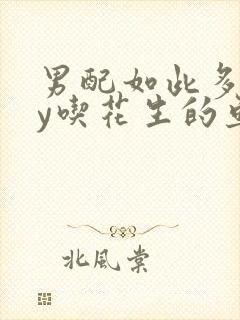 男配如此多
y喫花生的
北風棠